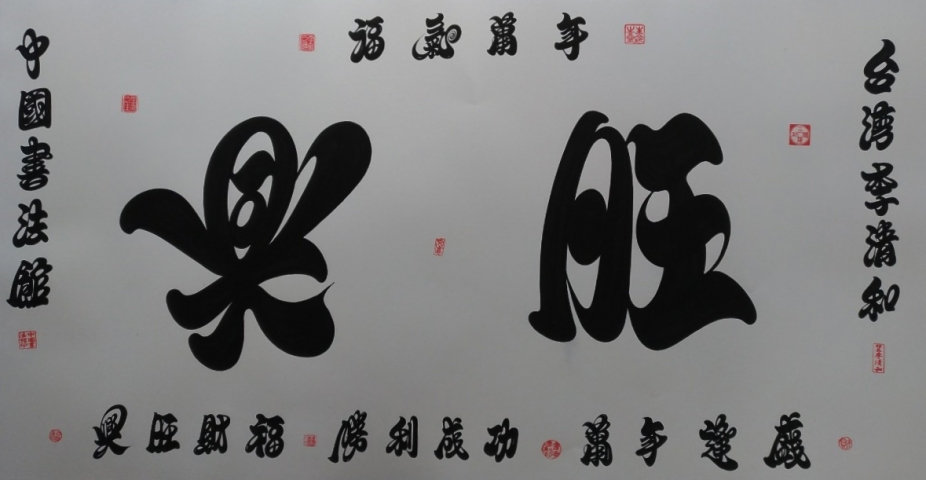 福氣萬年
興旺
台湾李清和
中國書法館
興旺財福 勝利成功 萬年